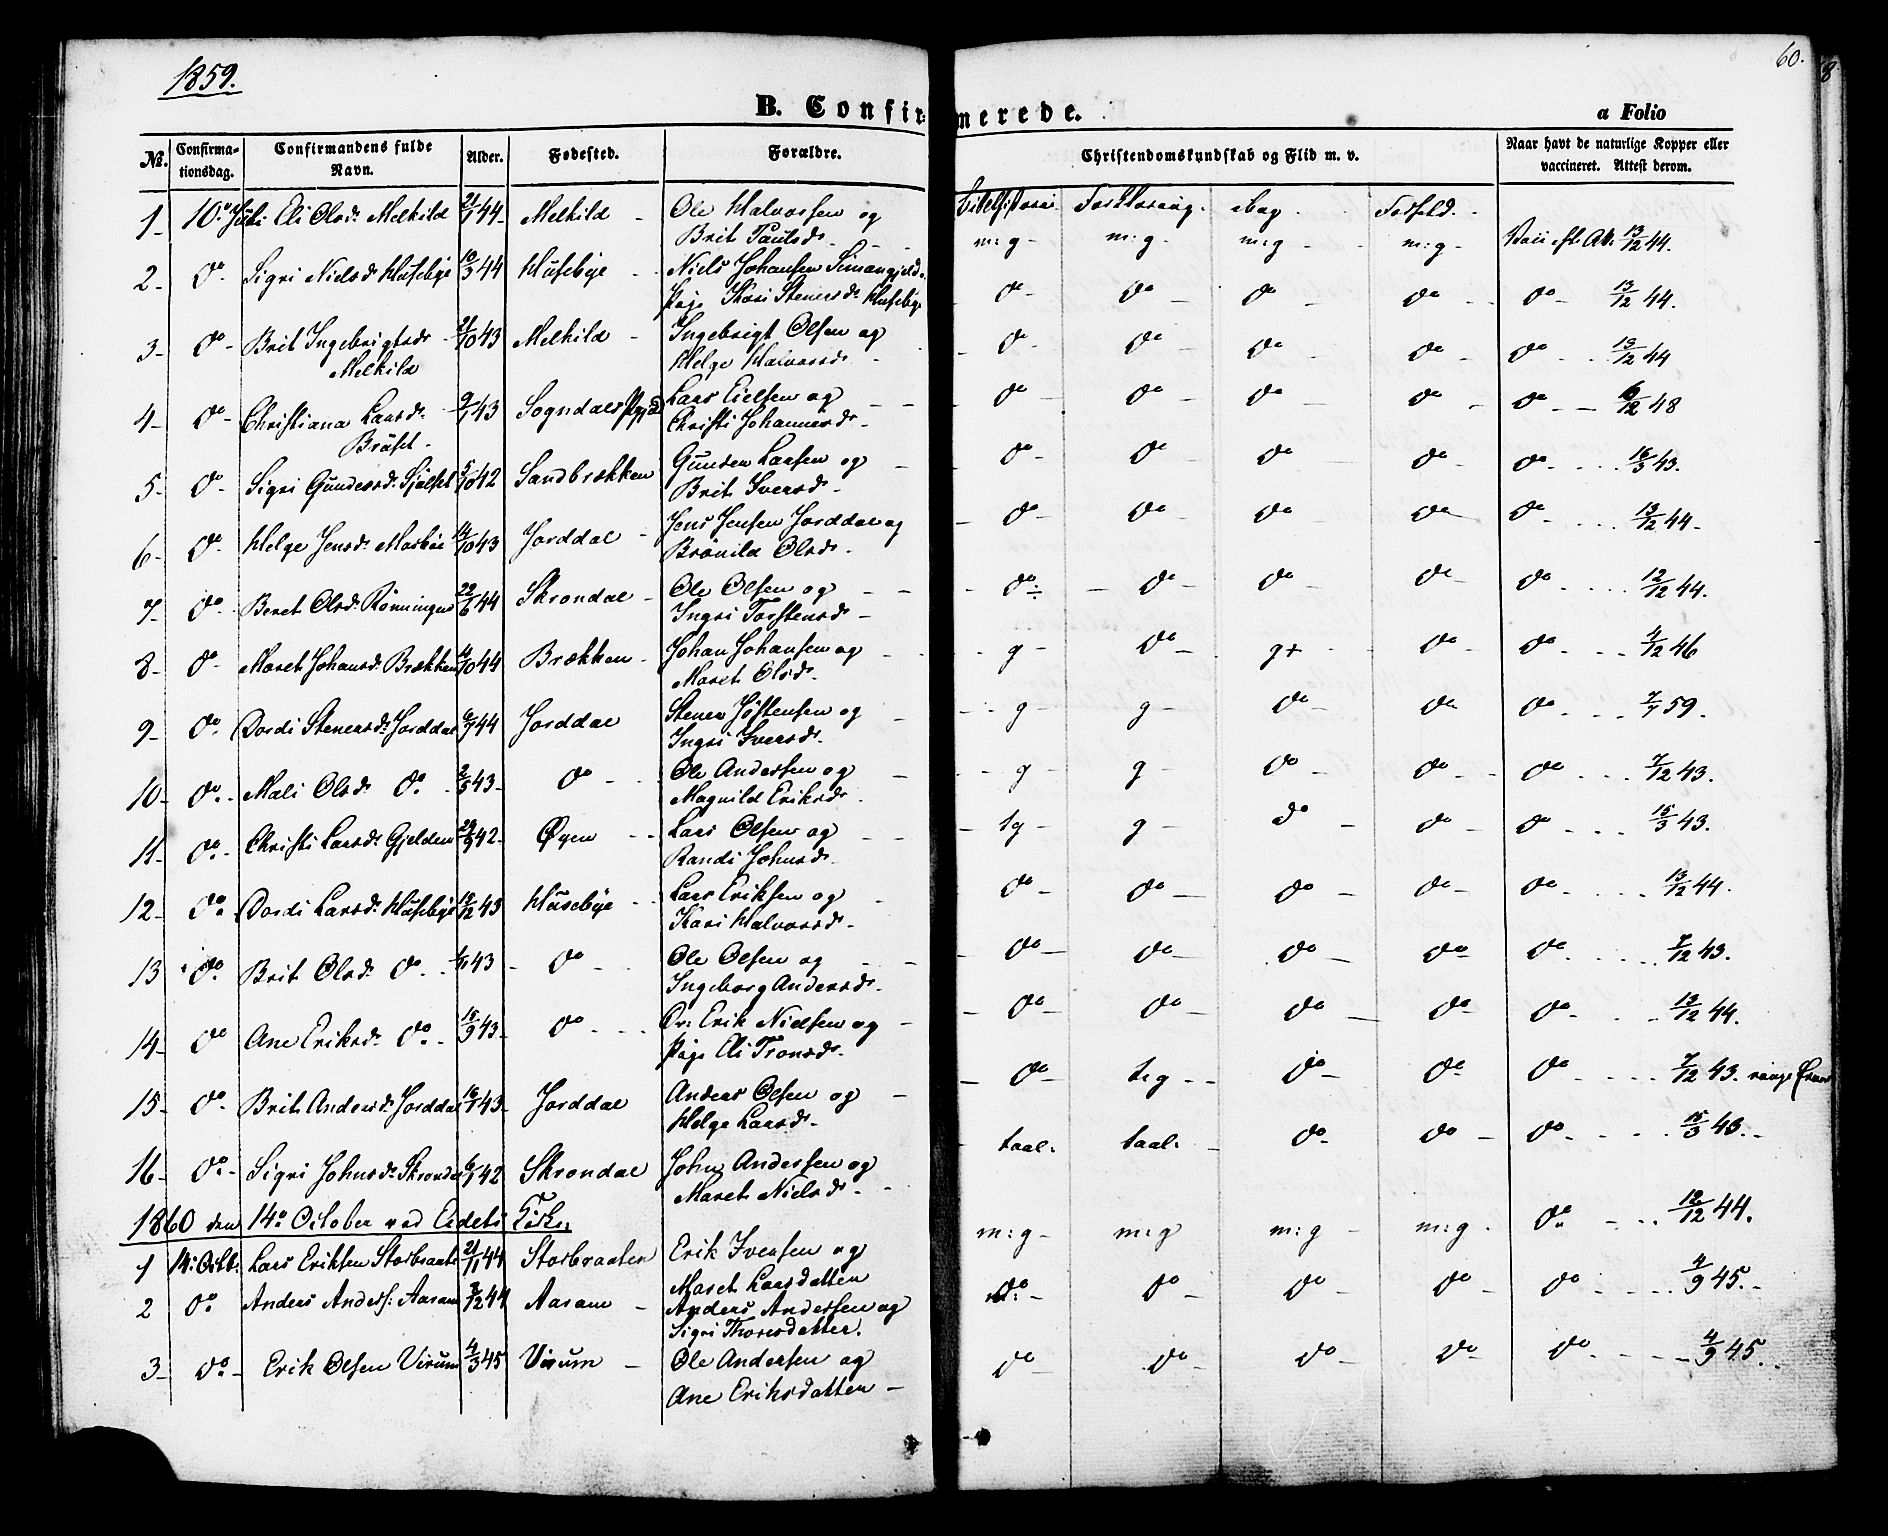 1859.
60.
8
B. Confirmerede.
a Folio
No. Confirmationsdag. Confirmandens fulde Navn. Alder. Fødested. Forældre. Christendomskundskab og Flid m. v. Naar havt de naturlige Kopper eller vaccineret. Attest derom.
Forklaring. Bog Forhold.
1 - 10de Juli Eli Olsd. Melkild 44 Melkild - Ole Halvorsen og m: g - m: g - m: g - m: g - 13/12 44.
Brit Paulsd.
2 - do - Sigri Nielsd. Husebye 44 Husebye Niels Johansen Simangjeld. do - do - do - do - do - 13/12 44.
Pige Kari Stenersd. Husebye
3 - do - Brit Ingebrigtsd. 21/10 43 Melkild - Ingebrigt Olsen og do - do - do - do - do - 13/12 44
Melkild Helge Halvorsd.
4 - do - Christiana Larsd. 43 Sogndals Lars Eielsen og do - do - do - do - do - 6/12 48
Christi Johannesd.
5 - do - Sigri Gundersd. 5/10 42 Sandbrækken Gunder Larsen og do - do - do - do - do - 16/3 43.
Brit Iversd.
6 - do - Helge Jensd. 14/10 43 Jorddal - Jens Jensen Jorddal og do - do - do - do - do - 13/12 44 -
Brønild Olsd.
7 - do - Beret Olsd. Rønningen 22/6 44 Skrondal - Ole Olsen og do ÷ do - do - do - do - 12/12 44.
Ingri Torstensd.
8 - do - Maret Johansd. Brækken 4/10 44 Brækken - Johan Johansen og g - do - g+ do - do - 4/12 46
Maret Olsd.
9 - do - Dordi Stenersd. Jorddal 6/7 44 Jorddal Stener Jøstensen og g - g - do - do - do - 7/7 59.
Ingri Iversd.
10 - do - Mali Olsd. do 2/5 43 - do - Ole Andersen og g - g - do - do - do - 7/12 43.
Magnild Eriksd.
11 - do - Christi Larsd. Gjelden 29/9 42 - Øyen Lars Olsen og tg - g - do - do - do - 15/3 43.
Randi Johnsd.
12 - do - Dordi Larsd. Husebye 15/12 43 Husebye Lars Eriksen og do - do - do - do - do - 13/12 44.
Kari Halvorsd.
13 do Brit Olsd. do 43 - do - Ole Olsen og do - do - do - do - do - 7/12 43.
Ingeborg Andersd.
14 - do Ane Eriksd. do - 15/9 43 - do - Erik Nielsen og do - do - do - do - do - 13/12 44.
Pige Eli Tronsd.
15 - do - Brit Andersd. Jorddal 43 - Jorddal Anders Olsen og do - tg - do - do - do - 7/12 43.
Helge Larsd.
16 - do - Sigri Johnsd. Skrondal 42 Skrondal John Andersen og taal: taal: do - do - do - 15/3 43. -
Maret Nielsd.
1860 den 14de October ved Eidets Kirke:
1 14: Octb: Lars Eriksen Storbraaten 21/11 44 Storbraaten Erik Iversen og m: g - m: g m: g - m: g - do - 12/12 44.
Maret Larsdatter
2 do Anders Anders: Aaram 44 Aaram - Anders Andersen og do - do - do - do - do - 4/9 45. -
Sigri Thoresdatter.
3 - do - Erik Olsen Virum 4/3 45 Virum - Ole Andersen og do - do - do - do - do - 4/9 45.
Ane Eriksdatter -